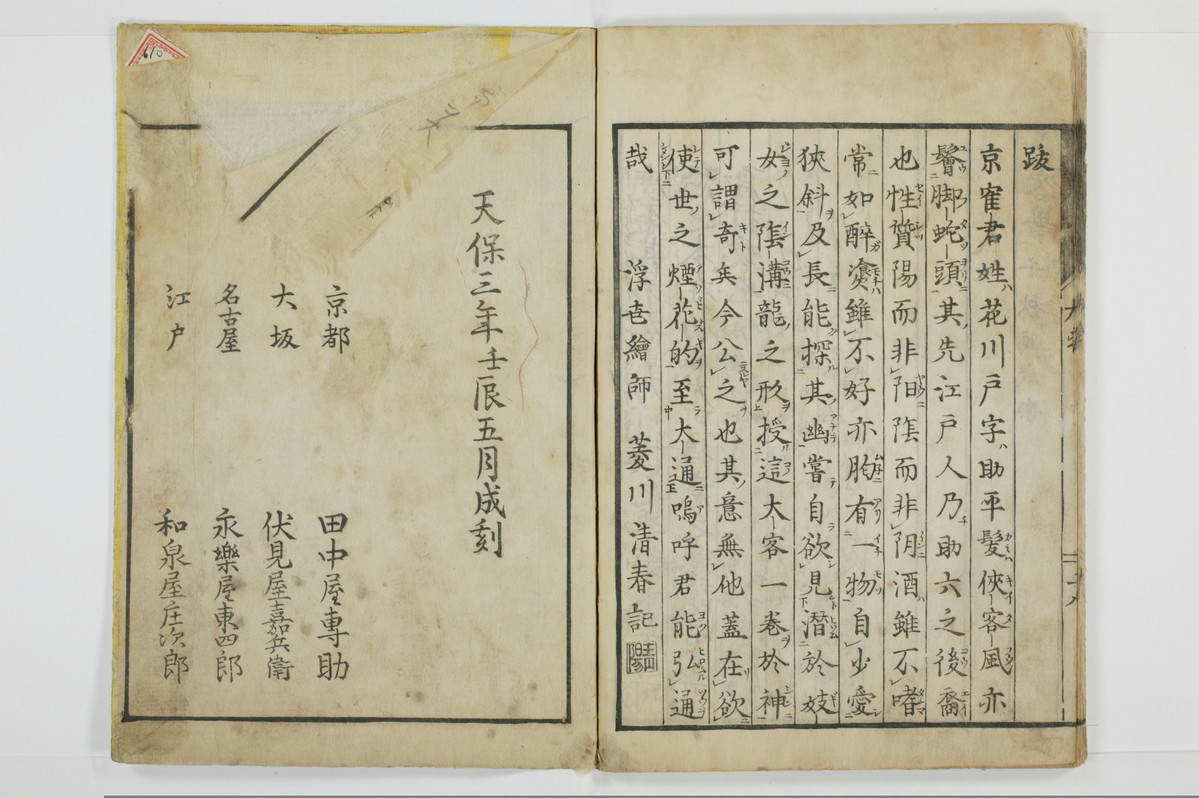 跋
京窂君姓花川戸字助平髪俠客風亦
鬠脚蛇頭其先江戸人乃助六之後裔
也性質陽而非陽陰而非陰酒雖不嗜
常如醉湌雖不好亦胸有一物自少愛
狹斜及長能探其幽嘗自欲見潜於妓
女之陰溝龍之形授這大客一巻於神
可謂奇矣今公之也其意無他蓋在欲
使世之煙花的至大通嗚呼君能弘通
哉　浮世繪師　菱川清春記
天保三年壬辰五月成刻
京都　田中屋專助
大坂　伏見屋嘉兵衛
名古屋　永樂屋東四郎
江戸　和泉屋庄次郎
610